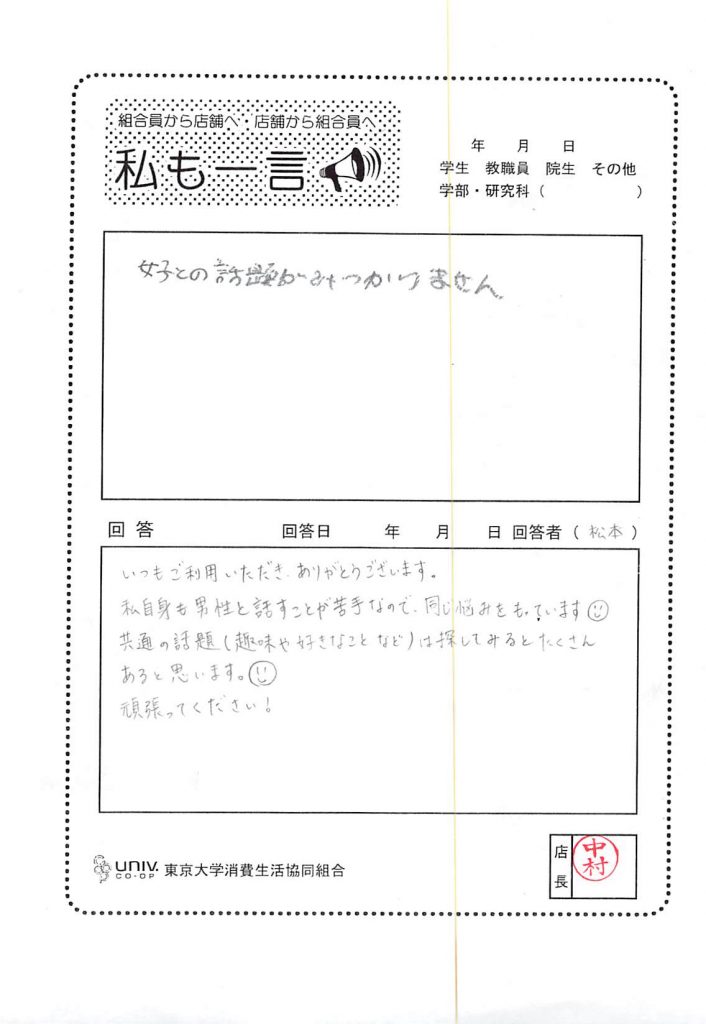 組合員から店舗へ・店舗から組合員へ
私も一言
年 月 日
学生 教職員 院生 その他
学部・研究科( )
女子との話題がみつかりません
回答 回答日 年 月 日 回答者(松本)
いつもご利用いただき、ありがとうございます。
私自身も男性と話すことが苦手なので、同じ悩みをもっています
共通の話題(趣味や好きなことなど)は探してみるとたくさん
あると思います。
頑張ってください!
UNIV.
CO-OP
東京大学消費生活協同組合
店長
中村